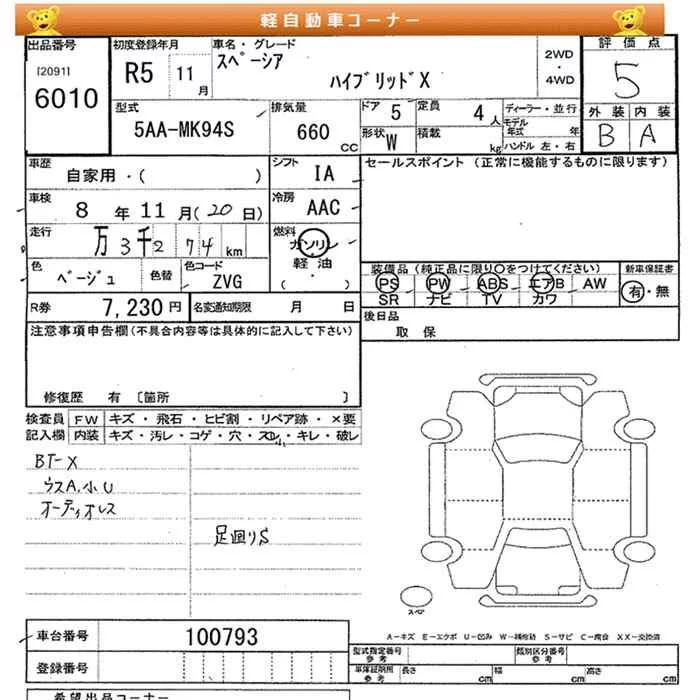 軽自動車コーナー
出品番号
[2091]
6010
初度登録年月
R5 11月
車名・グレード
スペーシア
ハイブリッドX
2WD
・
4WD
評価点
5
外装 内装
B A
型式
5AA-MK94S
排気量
660 CC
ドア 5
定員 4人
形状 W
積載 kg
ディーラー・並行
モデル年式 年
ハンドル 左・右
車歴
自家用・( )
シフト
IA
セールスポイント (正常に機能するものに限ります)
車検
8年11月(20日)
冷房
AAC
走行
万3千2 74km
燃料
ガソリン
軽油
・
( )
色
ベージュ
色替
色コード
ZVG
装備品 (純正品に限り○をつけてください)
PS PW ABS エアB AW
SR ナビ TV カワ
新車保証書
有・無
R券 7,230円
名変通知期限 月 日
後日品
取 保
注意事項申告欄(不具合内容等は具体的に記入して下さい)
修復歴 有 〔箇所 〕
検査員記入欄
FW キズ・飛石・ヒビ割・リペア跡・×要
内装 キズ・汚レ・コゲ・穴・スレ・キレ・破レ
BT-X
ウスA.小U
オーディオレス
足回りS
スペア
車台番号 100793
登録番号
A-キズ E-エクボ U-凹み W-補修跡 S-サビ C-腐食 XX-交換済
型式指定番号
参考
類別区分番号
参考
車庫証明用
参考
長さ cm 幅 cm 高さ cm
希望出品コーナー